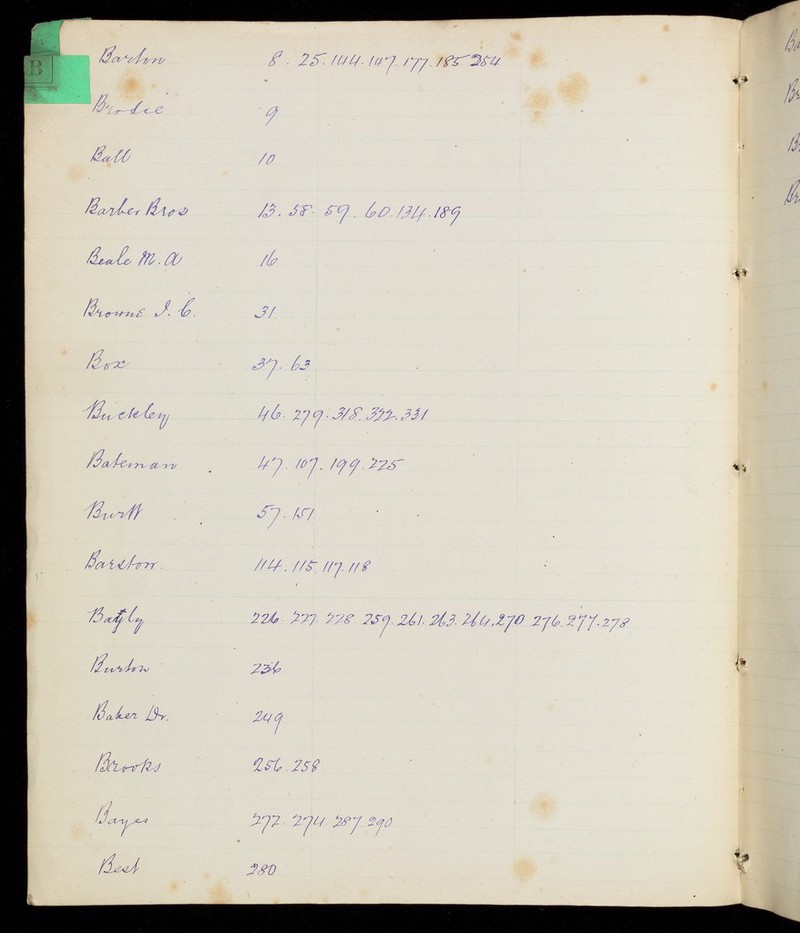 B
Barton 8. 25. 144. 147. 177. 185 254
Brodie 9
Ball 10
Barber Bros 13. 58. 59. 60. 134. 189
Beale M. A 16
Browne J. C. 31
Box 37. 63
Buckley 46. 279. 318. 322. 331
Bateman 47. 107. 199. 225
Burtt 57. 151
Barstow. 114. 115. 117. 118
Bayly 226. 227. 228. 259. 261. 263. 264, 270 276. 277. 278
Burton 236
Baker Dr. 249
Brooks 256. 258
Bayes 272. 274. 287. 290
Best 280